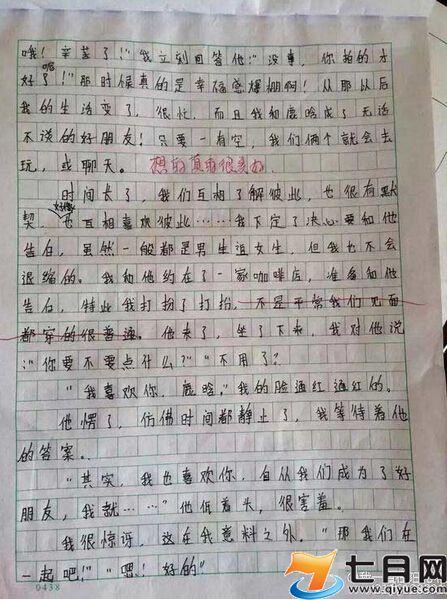 哦！辛苦了！”我立刻回答他：“没事，你拍的才
好呢！”那时候真的是幸福感爆棚啊！从那以后
我的生活变了，很忙，而且我和鹿晗成了无话
不谈的好朋友！只要一有空，我们俩个就会去
玩，或聊天。想的真有很美
时间长了，我们互相了解彼此，也很有默
契，好像也互相喜欢彼此……我下定了决心要和他
告白，虽然一般都是男生追女生，但我也不会
退缩的。我和他约在了一家咖啡店，准备和他
告白，特此我打扮了打扮，不是平常我们见面
都穿的很普通。他来了，坐了下来，我对他说
：“你要不要点什么？”“不用了？
“我喜欢你，鹿晗。”我的脸通红通红的。
他愣了，仿佛时间都静止了，我等待着他
的答案。
“其实，我也喜欢你，自从我们成为了好
朋友，我就……”他低着头，很害羞。
我很惊讶，这在我意料之外。“那我们在
一起吧！”“嗯！好的”
0438
七月网
www.qiyue.com